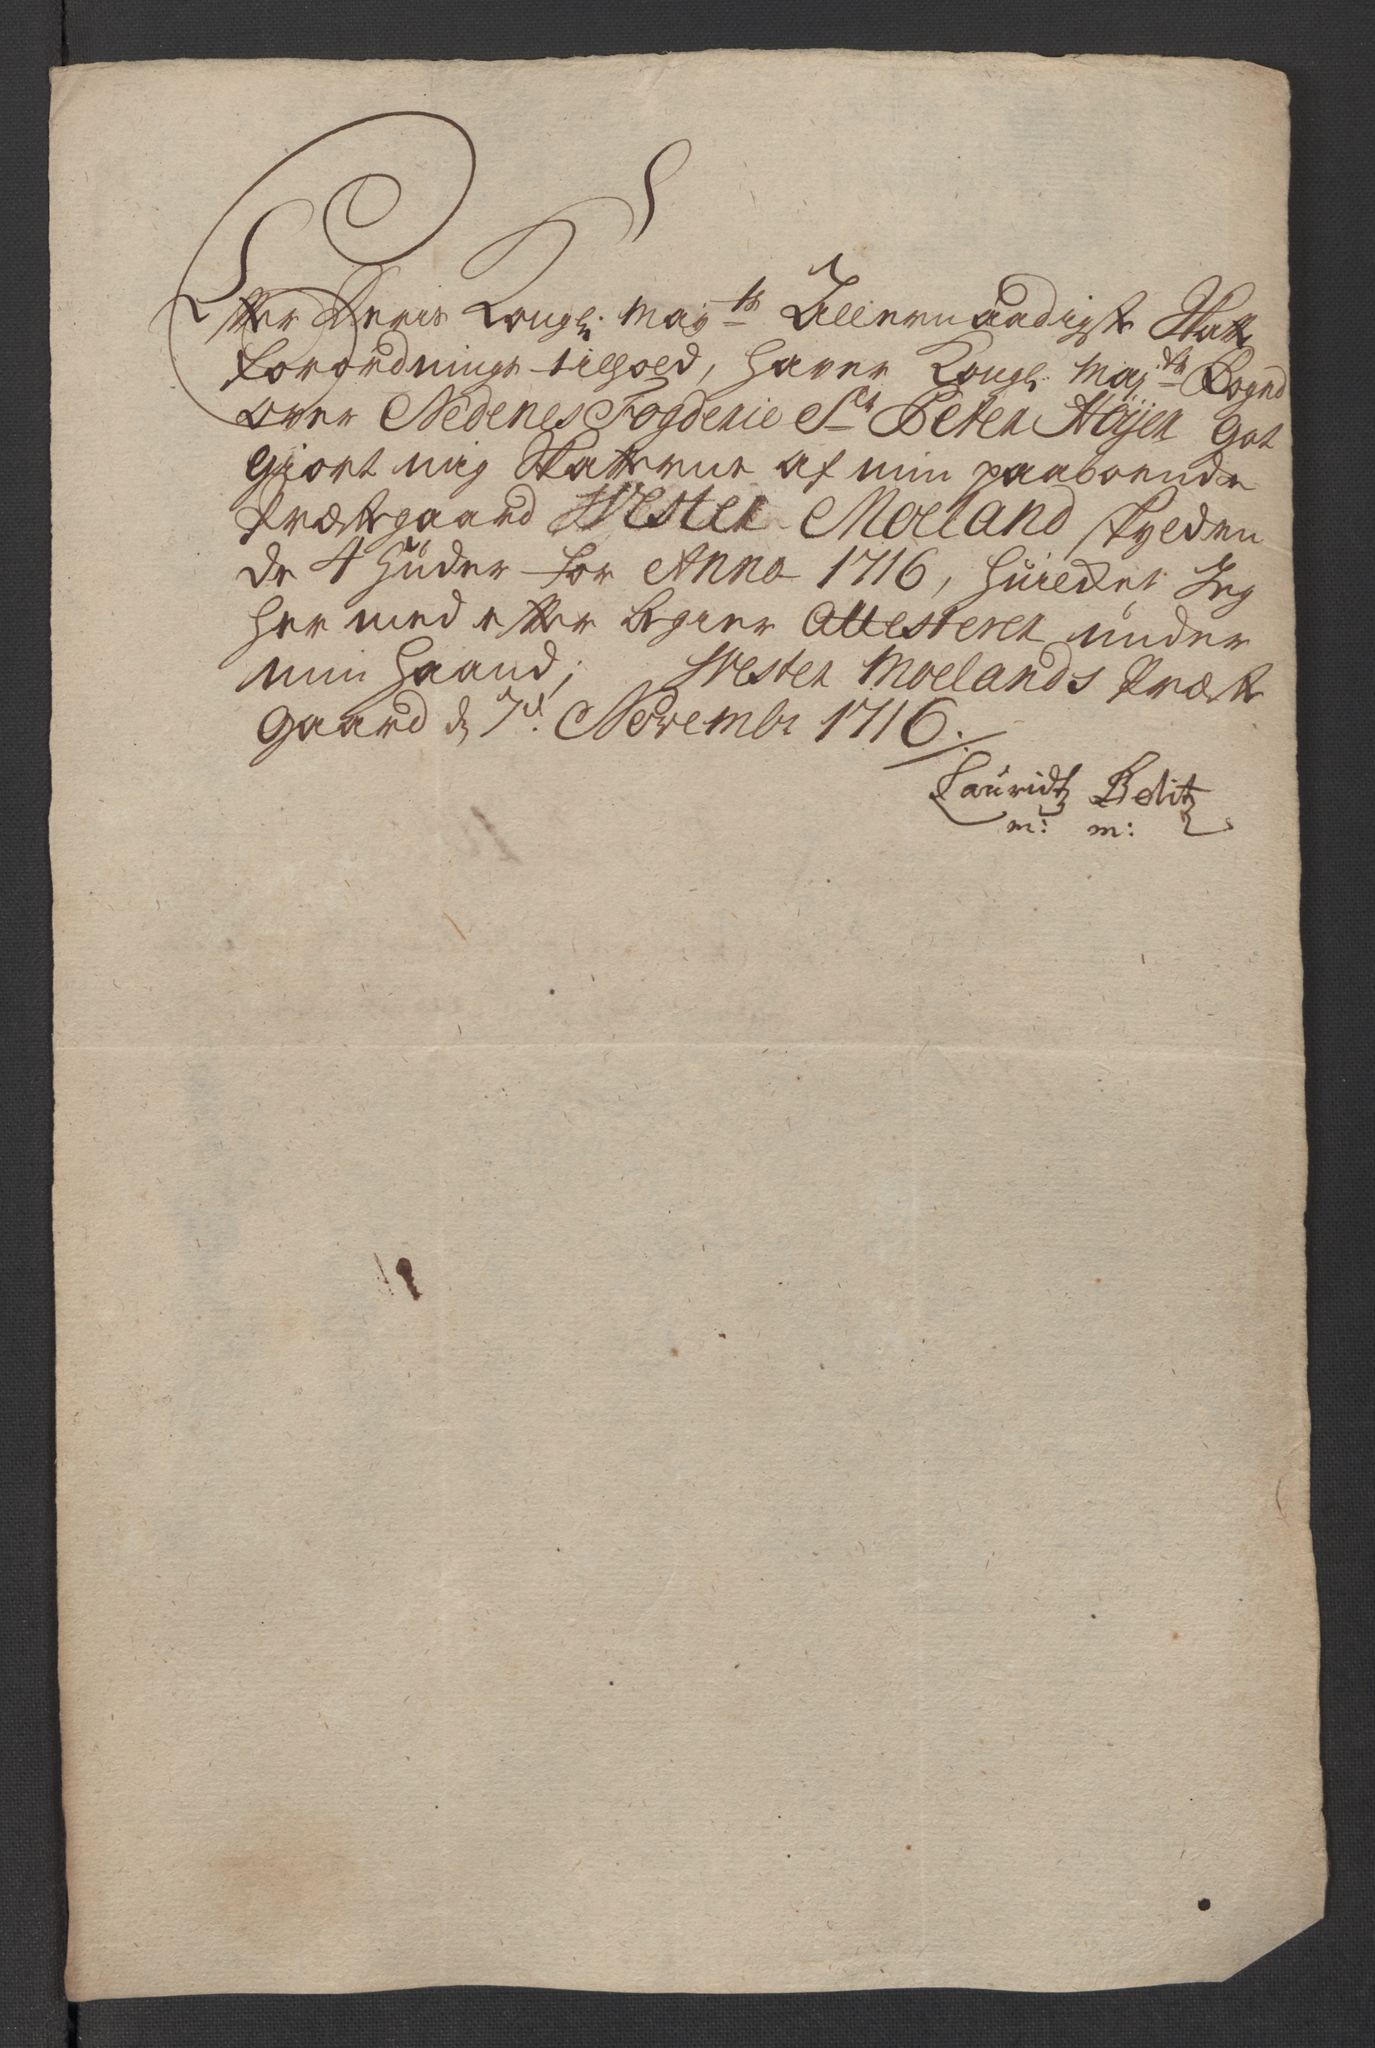 Efter Deris Kongl: Mayts Allernaadigste Skatte
forordnings tilhold, haver Kongl: Majts Fogud
over Nedenes Fogderie Sr Peter Höijer Got
Giort mig Skatterne af min paaboende
Præstegaard Wester Moeland skylden
de 4 Huder for Anno 1716, huilket Jeg
her med efter begier Attesterer under
min Haand; Wester Moelands Præste
Gaard d 7d. Novembr 1716.
Lauridtz Belitz
m: m: